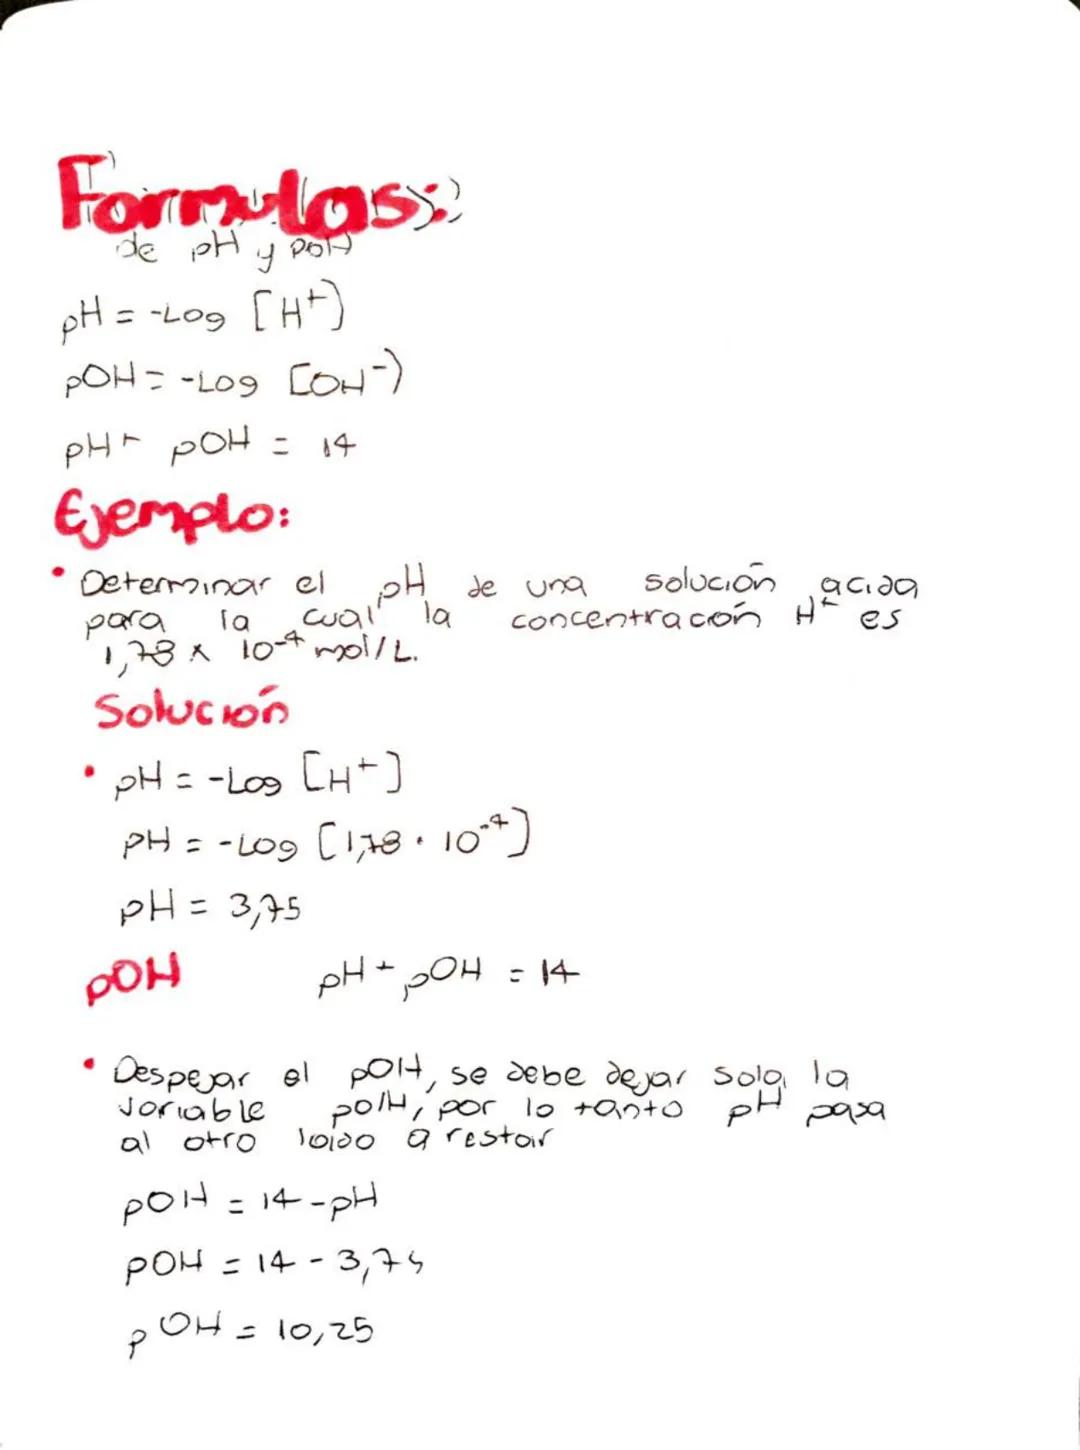 Formulas:
de pH y pOH
pH = -Log [H+)
pOH = -Log [OH-)
pH+ pOH = 14
Ejemplo:
• Determinar el pH de una solución acida
para la cual la concentración H+ es
1,78 x 10-4 mol/L.
Solución
• pH = -Log [H+]
pH = -Log [1,78 · 10-4]
pH = 3,75
pOH pH + pOH = 14
• Despejar el pOH, se debe dejar sola la
variable pOH, por lo tanto pH pasa
al otro lado a restar
pOH = 14 - pH
pOH = 14 - 3,75
pOH = 10,25